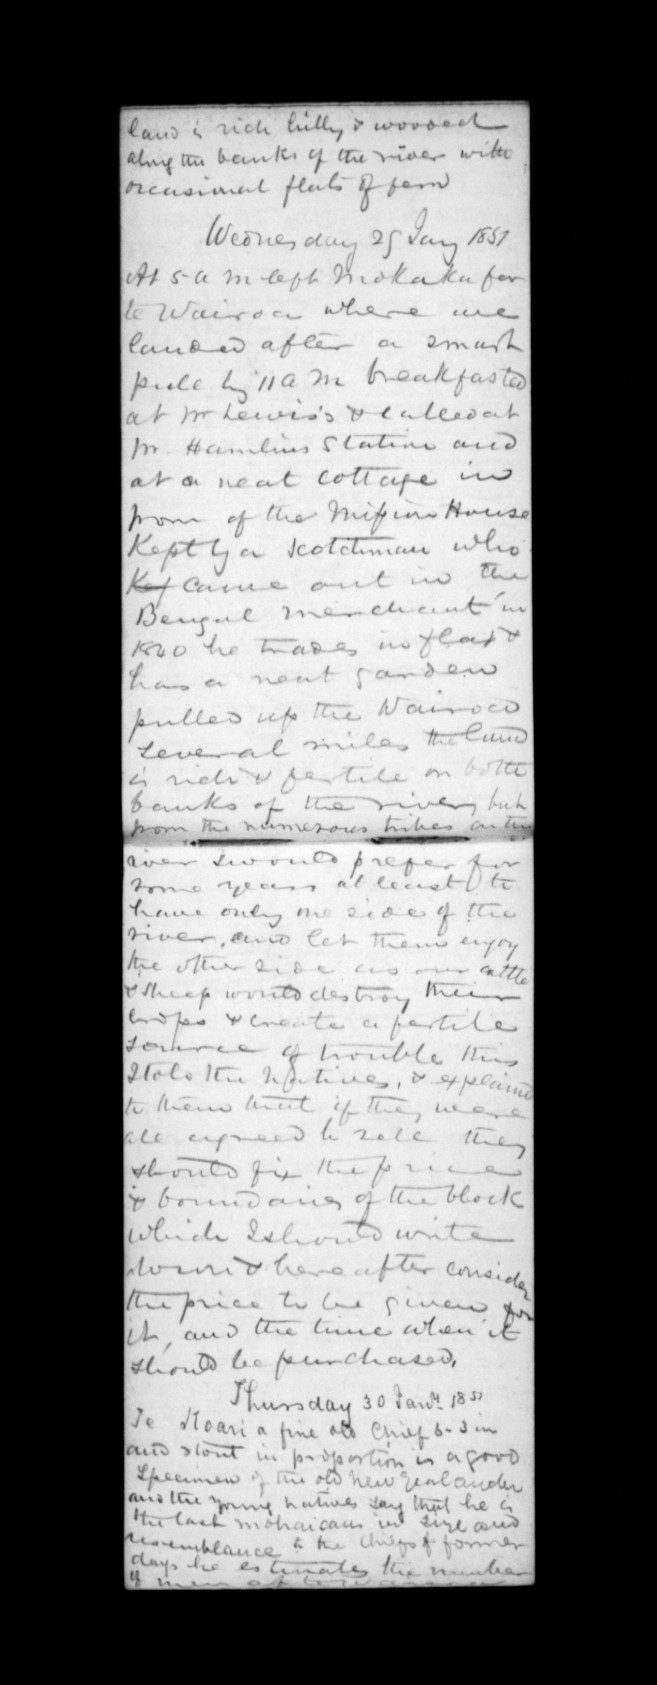 land is rich hilly & wooded
along the banks of the river with
occasional flats of fern
Wednesday 29 Jany 1851
At 5 a m left Mokaka for
te Wairoa where we
landed after a smart
pull by 11 a m breakfasted
at Mr Lewis's & called at
Mr. Hamlins Station and
at a neat cottage in
front of the Mission House
Kept by a Scotchman who
Kep came out in the
Bengal Merchant in
1840 he trades in flax &
has a neat garden
pulled up the Wairoa
several miles the land
is rich & fertile on both
banks of the river, but
from the numerous tribes on the
river I would prefer for
some years at least to
have only one side of the
river, and let them enjoy
the other side as our cattle
& sheep would destroy their
crops & create a fertile
source of trouble this
I told the Natives, & explained
to them that if they were
all agreed to sell they
should fix the price
& boundaries of the block
which I should write
down & hereafter consider
the price to be given for
it, and the time when it
should be purchased.
Thursday 30 Jany. 1851
Te Koari a fine old Chief 6-3 in
and stout in proportion is a good
Specimen of the old New Zealander
and the young natives say that he is
the last mohaicans in size and
resemblance to the chiefs of former
days he estimates the number
of men at